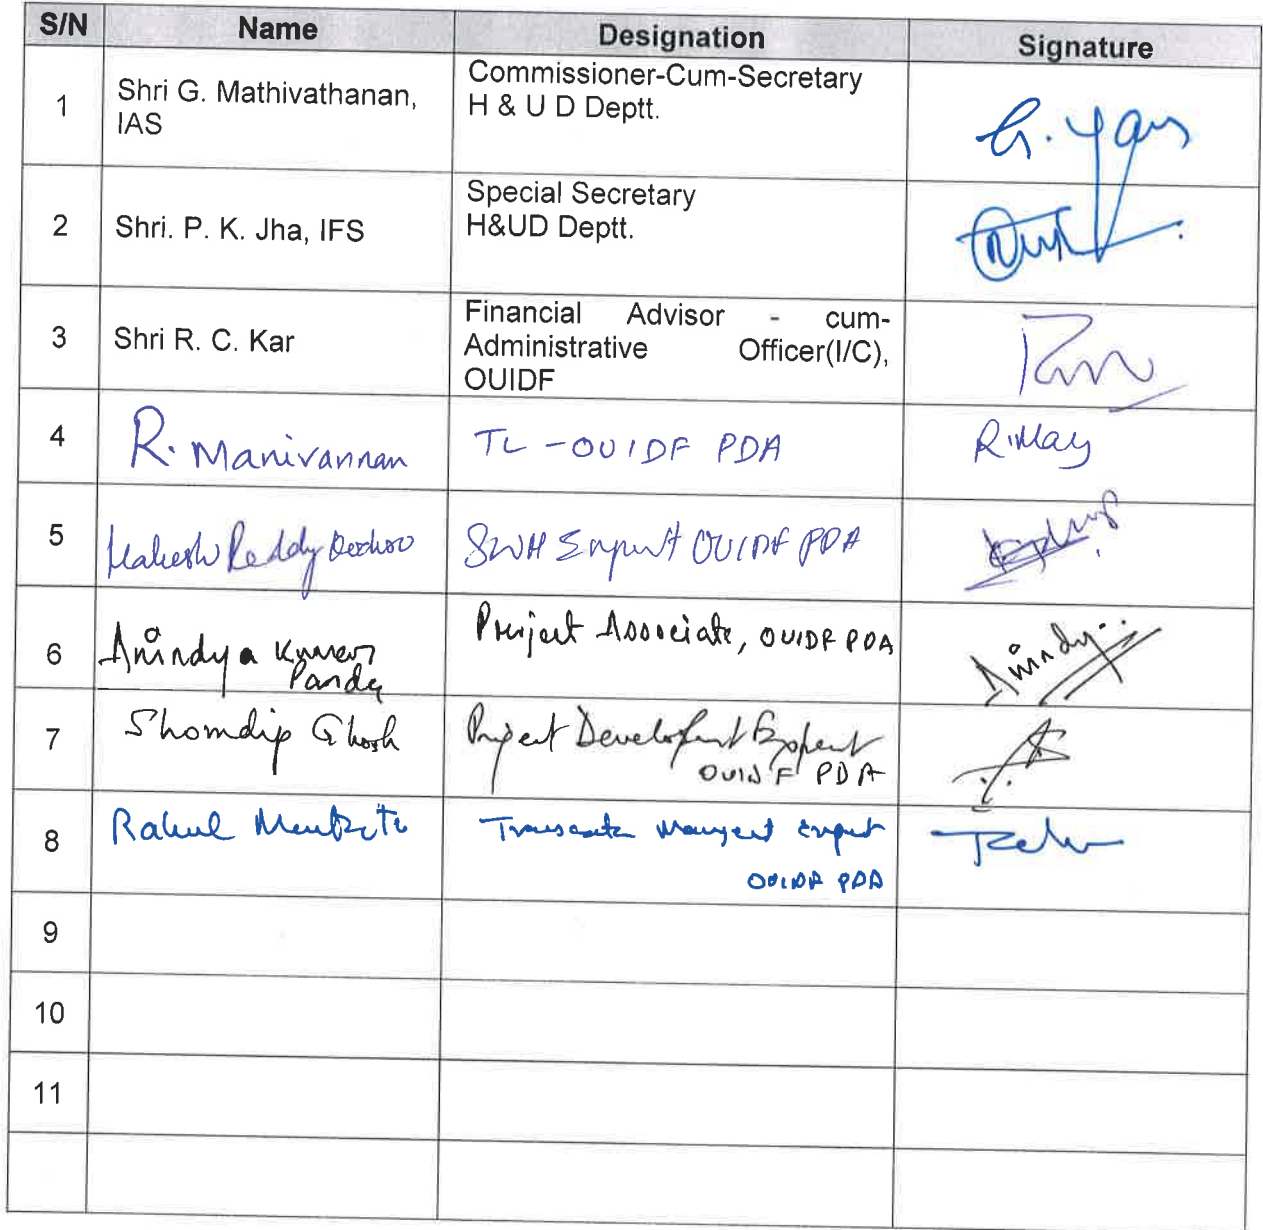 S/N Name Designation Signature
1 Shri G. Mathivathanan, Commissioner-Cum-Secretary
IAS H & U D Deptt.
2 Shri. P. K. Jha, IFS Special Secretary
H&UD Deptt.
3 Shri R. C. Kar Financial Advisor - cum-
Administrative Officer(I/C),
OUIDF
4 R. Manivannan TL - OUIDF PDA R.May
5 Reddy OUIDF PDA
6 Anindya Kumar Project Associate, OUIDF PDA Anindy
Panda
7 Shomdip Ghosh Project Development Expert
OUIDF PDA
8 Rahul Expert
OUIDF PDA
9
10
11